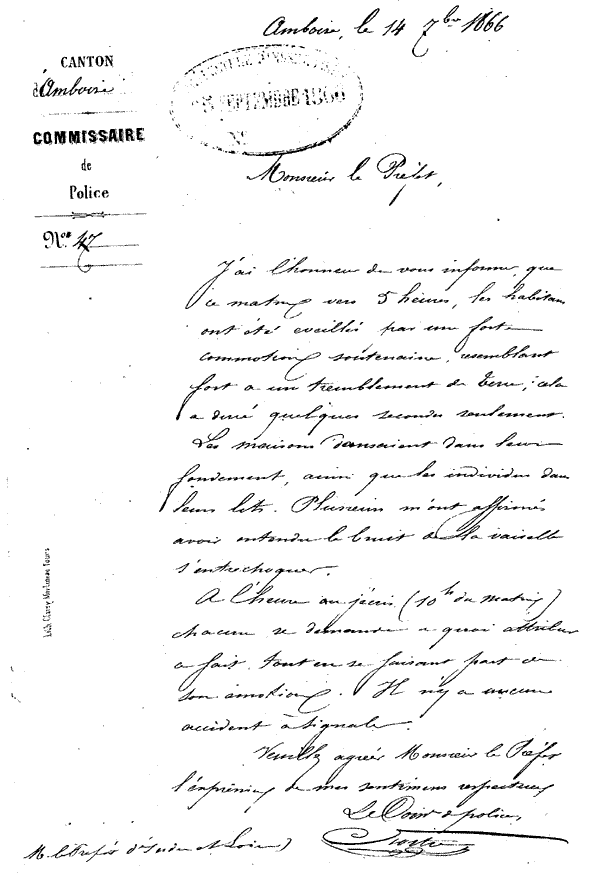 Amboise, le 14 7bre 1866
CANTON
d'Amboise
COMMISSAIRE
de
Police
Nos 47
SEPTEMBRE 1866
Monsieur le Préfet,
J'ai l'honneur de vous informer, que
ce matin vers 5 heures, les habitans
ont été eveillés par une forte
commotion souterraine, resemblant
fort a un tremblement de terre; cela
a durré quelques secondes seulement.
Les maisons dansaient dans leur
fondement, ainsi que les individus dans
leurs lits. Plusieurs m'ont affirmés
avoir entendu le bruit de la vaiselle
s'entrechoquer.
A l'heure ou j'ecris (10h du matin)
chacun se demande a quoi attribuer
ce fait, tout en se faisant part de
son émotion. Il n'y a aucun
accident à signaler.
Veuillez agréer Monsieur le Préfet
l'expression de mes sentimens respectueux
Le Comre de police,
M. le Préfet d'Indre et Loire